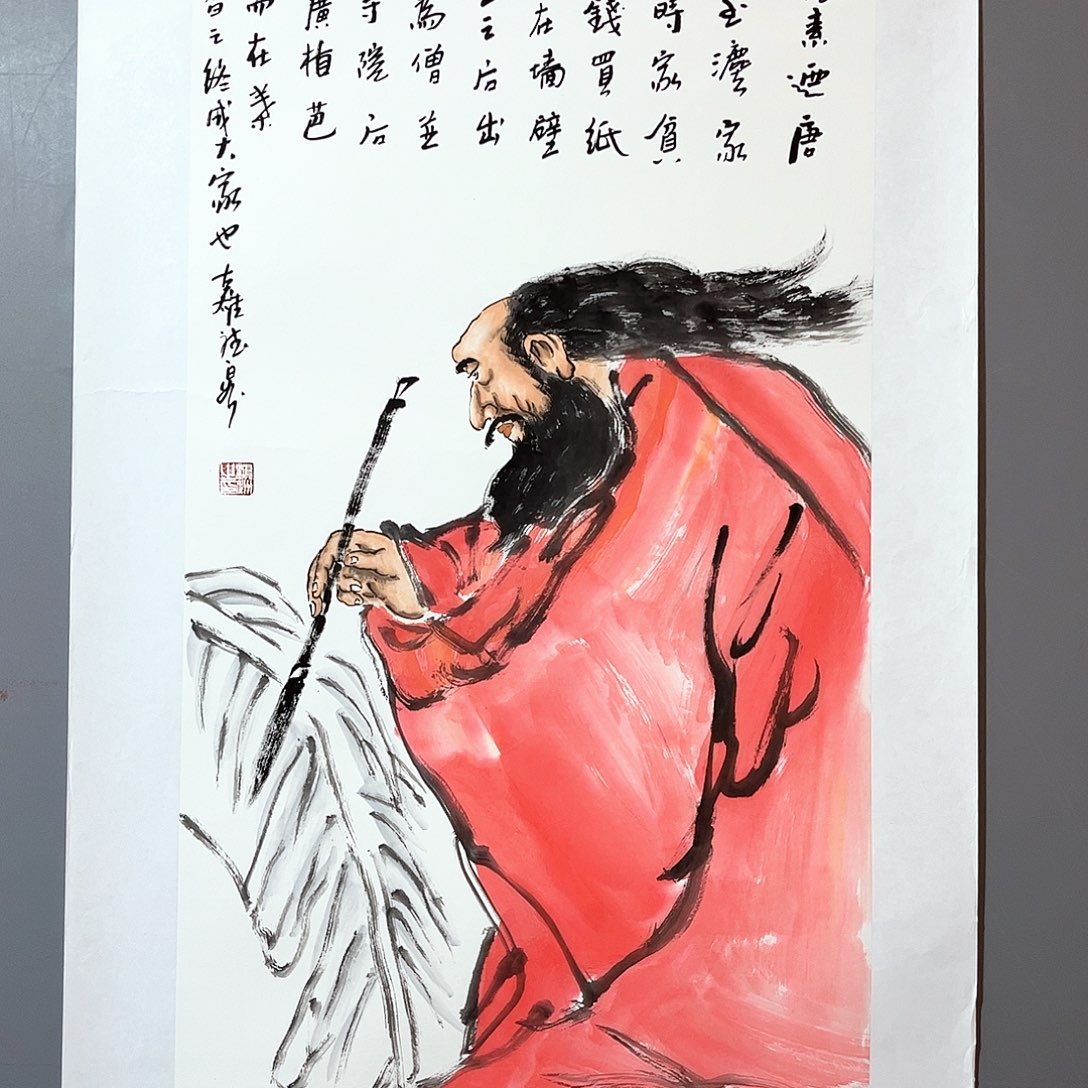 素迺唐
灋家
時家貧
錢買紙
在墻壁
之后出
為僧並
寺院后
廣植芭
而在葉
之終成大家也